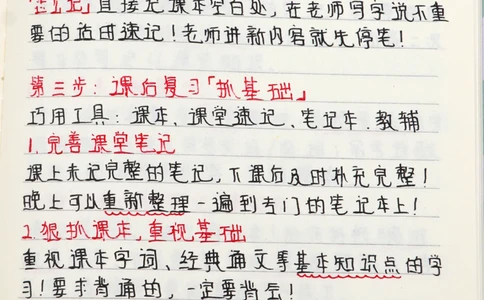 「速记」直接记课本空白处,在老师写字说不重
要的话时速记!老师讲新内容就先停笔!
第三步:课后复习「抓基础」
巧用工具:课本、课堂速记、笔记本、教辅
1.完善课堂笔记
课上未记完整的笔记,下课后及时补充完整!
晚上可以重新整理一遍到专门的笔记本上!
2.狠抓课本,重视基础
重视课本字词、经典通文等基本知识点的学
习!要求背诵的,一定要背会!